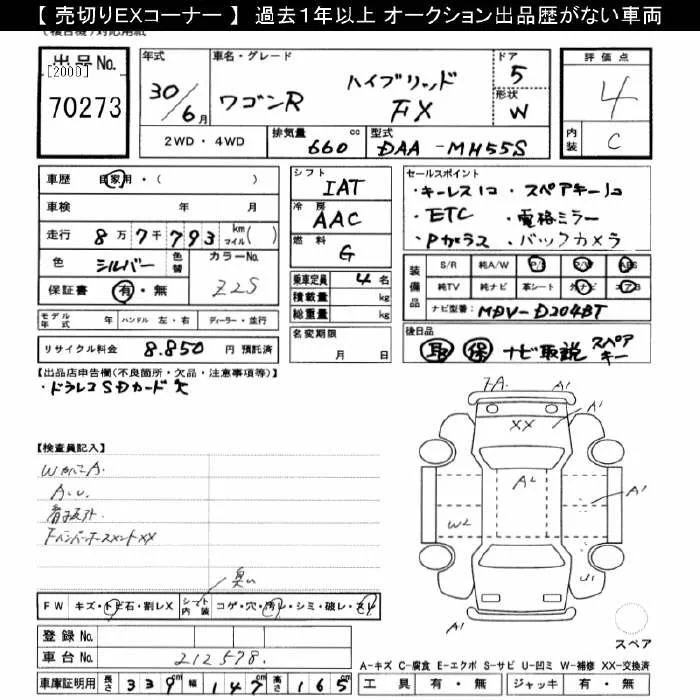 【 売切りEXコーナー 】 過去1年以上 オークション出品歴がない車両
出品No.
[2000]
70273
年式
30/6月
車名・グレード
ワゴンR ハイブリッド FX
ドア
5
形状
W
評価点
4
内装
C
2WD ・ 4WD
排気量
660 cc
型式
DAA - MH55S
車歴
自家用・( )
車検 年 月
走行 8万7千793 km マイル( )
色 シルバー
色替
カラーNo.
Z2S
保証書 有・無
モデル年式 年
ハンドル 左・右
ディーラー・並行
リサイクル料金 8,850 円 預託済
シフト
IAT
冷房
AAC
燃料
G
乗車定員 4名
積載量 kg
総重量 kg
名変期限
月 日
セールスポイント
・キーレス1コ ・スペアキー1コ
・ETC ・電格ミラー
・Pガラス ・バックカメラ
装備品
S/R 純A/W P/S P/W ABS
純TV 純ナビ 革シート 外ナビ エアB
ナビ型番: MDV-D204BT
後日品
取 保 ナビ取説 スペアキー
【出品店申告欄(不良箇所・欠品・注意事項等)】
・ドラレコSDカード欠
【検査員記入】
A.U.
7A. A'
A'
XX
A2
A'
W2
U1
A'
スペア
臭い
FW キズ・トビ石・割レX
シート内装 コゲ・穴・汚レ・シミ・破レ・スレ
登録No.
車台No. 212578.
車庫証明用 長さ 339cm 幅 147cm 高さ 165cm
A-キズ C-腐食 E-エクボ S-サビ U-凹ミ W-補修 XX-交換済
工具 有・無 ジャッキ 有・無